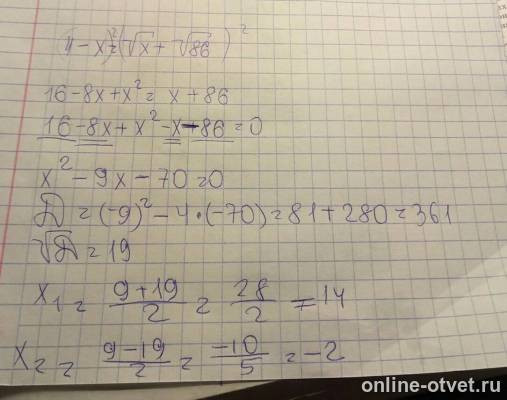 (4-x)²=(√x+√86)²
16-8x+x²=x+86
16-8x+x²-x-86=0
x²-9x-70=0
D=(-9)²-4·(-70)=81+280=361
√D=19
x₁=9+19/2=28/2=14
x₂=9-19/2=-10/5=-2
online-otvet.ru